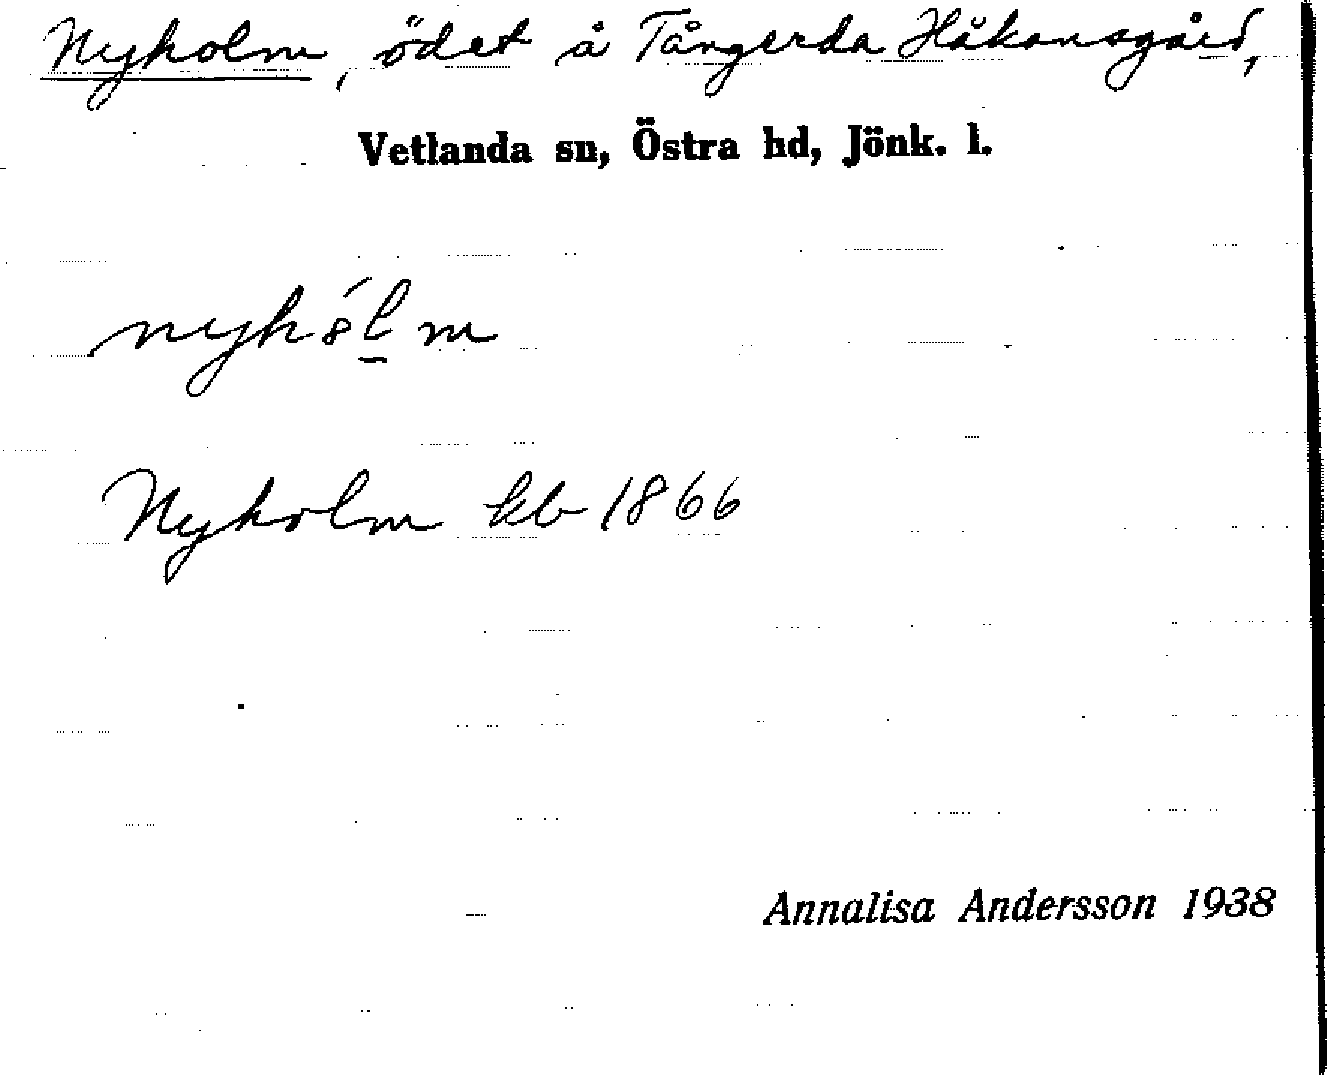 Nyholm, ödet å Tångerda Håkansgård,
Vetlanda sn, Östra hd, Jönk. l.
nyhólm
Nyholm kb 1866
Annalisa Andersson 1938